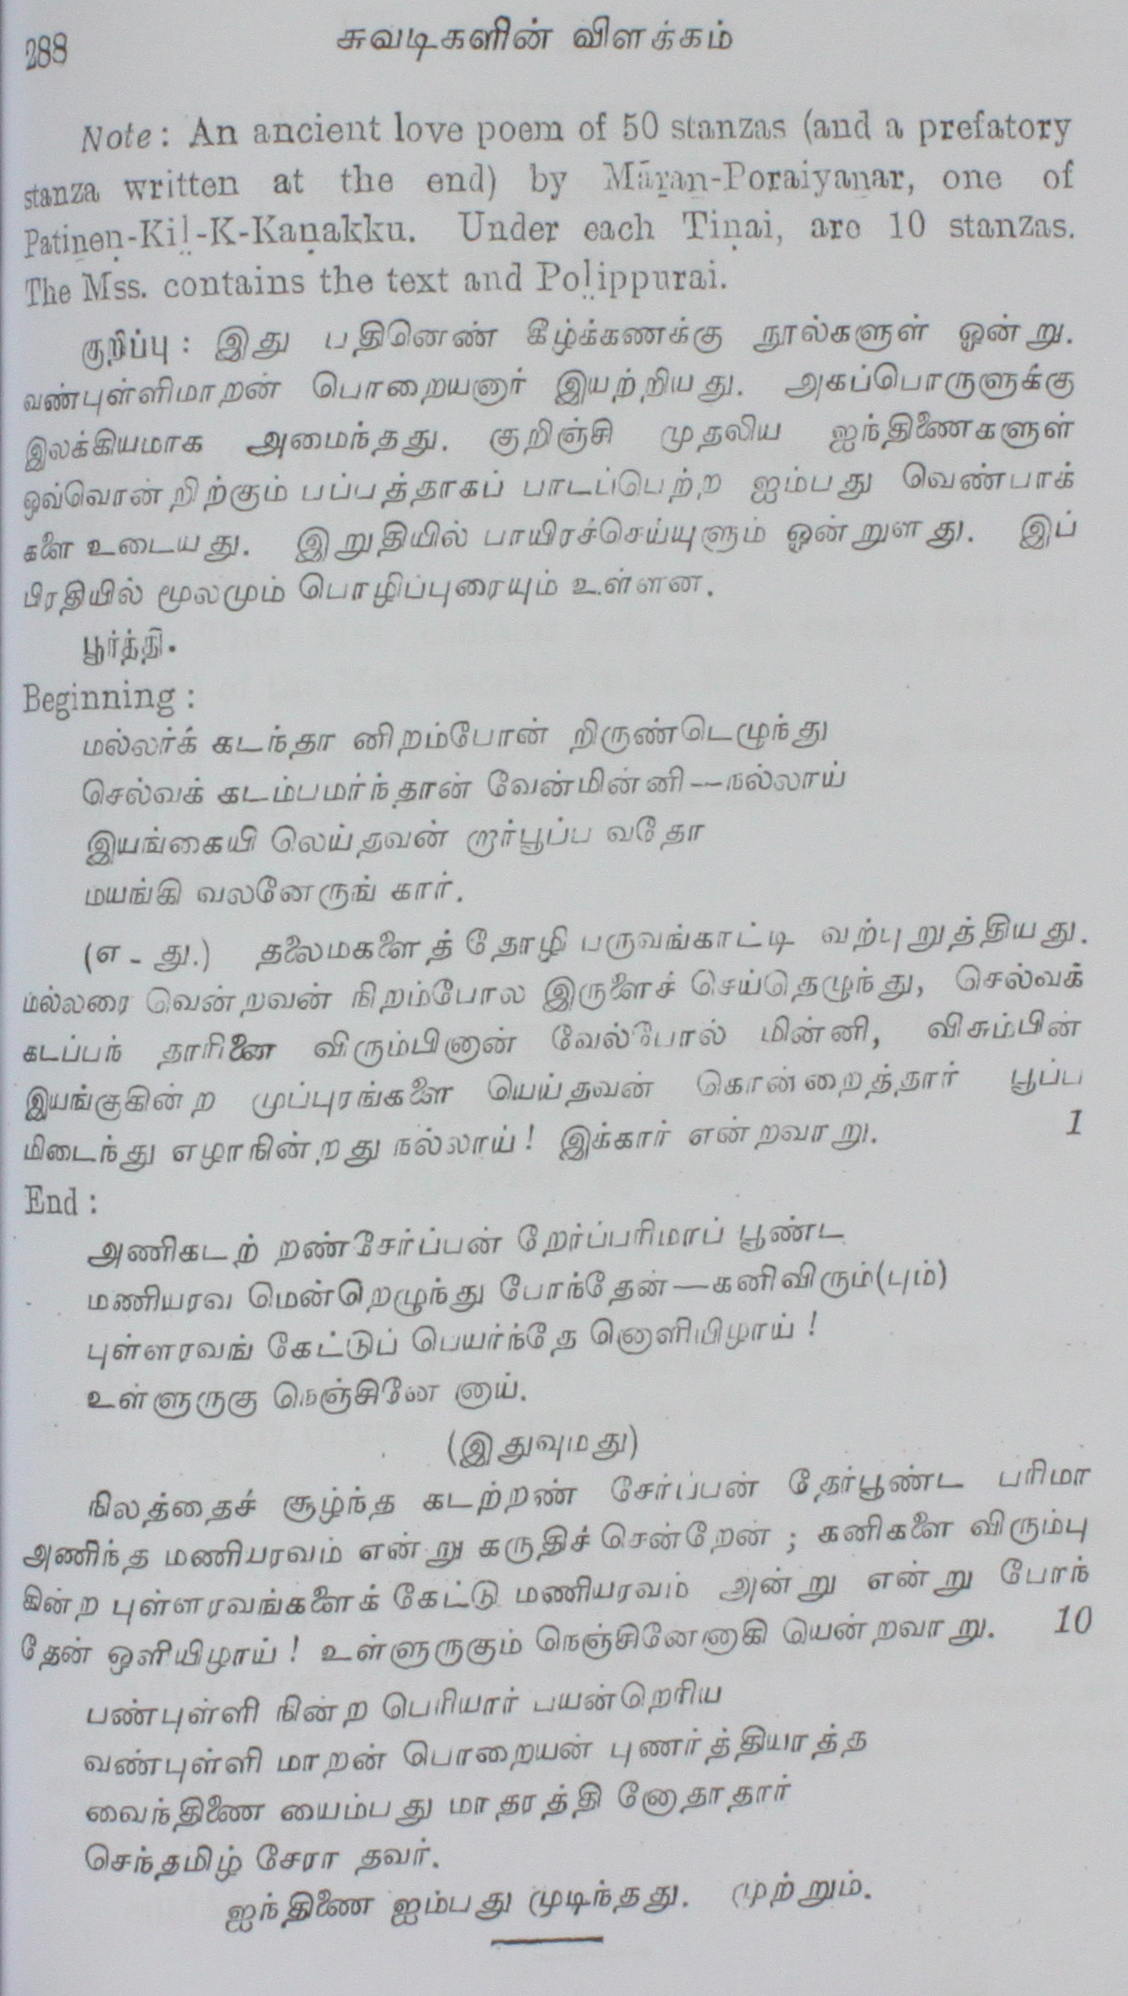 288
சுவடிகளின் விளக்கம்
Note : An ancient love poem of 50 stanzas (and a prefatory
stanza written at the end) by Māṟaṉ-Poraiyaṉar, one of
Patiṉeṇ-Kīḻ-K-Kaṇakku. Under each Tiṇai, are 10 stanzas.
The Mss. contains the text and Poḻippurai.
குறிப்பு : இது பதினெண் கீழ்க்கணக்கு நூல்களுள் ஒன்று.
வண்புள்ளிமாறன் பொறையனார் இயற்றியது. அகப்பொருளுக்கு
இலக்கியமாக அமைந்தது. குறிஞ்சி முதலிய ஐந்திணைகளுள்
ஒவ்வொன்றிற்கும் பப்பத்தாகப் பாடப்பெற்ற ஐம்பது வெண்பாக்
களை உடையது. இறுதியில் பாயிரச்செய்யுளும் ஒன்றுளது. இப்
பிரதியில் மூலமும் பொழிப்புரையும் உள்ளன.
பூர்த்தி.
Beginning :
மல்லர்க் கடந்தா னிறம்போன் றிருண்டெழுந்து
செல்வக் கடம்பமர்ந்தான் வேன்மின்னி—நல்லாய்
இயங்கெயி லெய்தவன் றார்பூப்ப வதோ
மயங்கி வலனேருங் கார்.
(எ - து.) தலைமகளைத் தோழி பருவங்காட்டி வற்புறுத்தியது.
மல்லரை வென்றவன் நிறம்போல இருளைச் செய்தெழுந்து, செல்வக்
கடப்பந் தாரினை விரும்பினான் வேல்போல் மின்னி, விசும்பின்
இயங்குகின்ற முப்புரங்களை யெய்தவன் கொன்றைத்தார் பூப்ப
மிடைந்து எழாநின்றது நல்லாய்! இக்கார் என்றவாறு. 1
End :
அணிகடற் றண்சேர்ப்பன் றேர்ப்பரிமாப் பூண்ட
மணியரவ மென்றெழுந்து போந்தேன்—கனிவிரும்(பும்)
புள்ளரவங் கேட்டுப் பெயர்ந்தே னொளியிழாய்!
உள்ளுருகு நெஞ்சினே னாய்.
(இதுவுமது)
நிலத்தைச் சூழ்ந்த கடற்றண் சேர்ப்பன் தேர்பூண்ட பரிமா
அணிந்த மணியரவம் என்று கருதிச் சென்றேன் ; கனிகளை விரும்பு
கின்ற புள்ளரவங்களைக் கேட்டு மணியரவம் அன்று என்று போந்
தேன் ஒளியிழாய்! உள்ளுருகும் நெஞ்சினேனாகி யென்றவாறு. 10
பண்புள்ளி நின்ற பெரியார் பயன்றெரிய
வண்புள்ளி மாறன் பொறையன் புணர்த்தியாத்த
வைந்திணை யைம்பது மாதரத்தி னோதாதார்
செந்தமிழ் சேரா தவர்.
ஐந்திணை ஐம்பது முடிந்தது. முற்றும்.